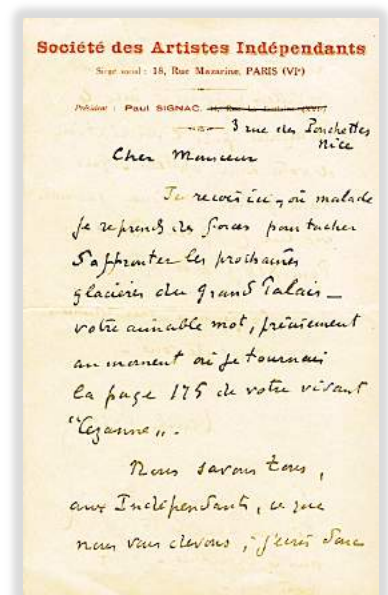 Société des Artistes Indépendants
Siège social : 18, Rue Mazarine, PARIS (VIe)
Président : Paul SIGNAC, Rue La Fontaine (XVIe)
3 rue des Ponchettes
Nice
Cher Monsieur
Je reçois ici, où malade
je reprends des forces pour tacher
d'affronter les prochaines
glacières du Grand Palais _
votre aimable mot, précisement
au moment où je tournais
la page 175 de votre vivant
"Cezanne".
Nous savons tous,
aux Indépendants, ce que
nous vous devons, j'écris donc